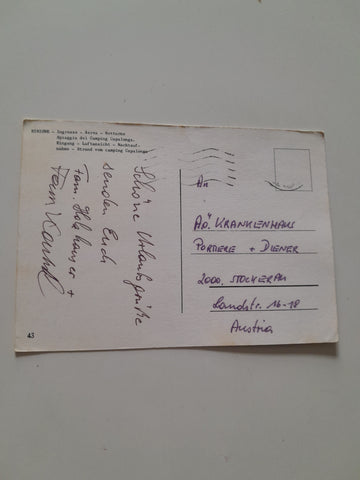 BIBIONE - Ingresso - Aerea - Notturno
Spiaggia del Camping Capalonga.
Eingang - Luftansicht - Nachtauf-
nahme - Strand vom camping Capalonga
Schöne Urlaubsgrüße
senden Euch
Fam. Holzhauser +
Fam.
An
A.Ö KRANKENHAUS
PORDERE + DIENER
2000, STOCKERAU
Landstr. 16-18
Austria
43